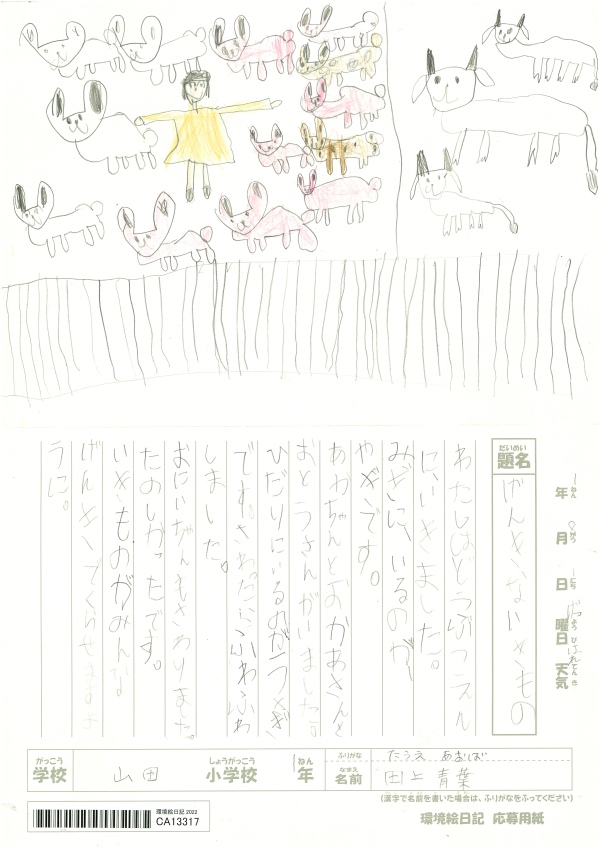 だいめい
題名
げんきないきもの
ねん
年
がつ
月
にち
日
ようび
曜日
てんき
天気
わたしはどうぶつえん
に、いきました。
みぎに、いるのが
やぎです。
あかちゃんとおかあさんと
おとうさんがいました。
ひだりにいるのがうさぎ
です。さわたらふわふわ
しました。
おにいちゃんもさわりました。
たのしかったです。
いきものがみんな
げんきでくらせますよ
うに。
がっこう
学校
山田
しょうがっこう
小学校
1
ねん
年
ふりがな
なまえ
名前
たうえ あおば
田上 青葉
(漢字で名前を書いた場合は、ふりがなをふってください)
環境絵日記 2022
CA13317
環境絵日記 応募用紙